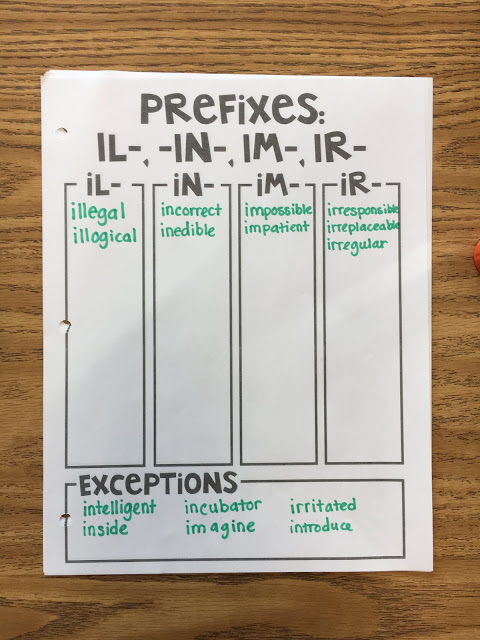 PREFIXES:
IL-, -IN-, IM-, IR-
iL-
illegal
illogical
iN-
incorrect
inedible
iM-
impossible
impatient
iR-
irresponsible
irreplaceable
irregular
EXCEPTIONS
intelligent incubator irritated
inside imagine introduce